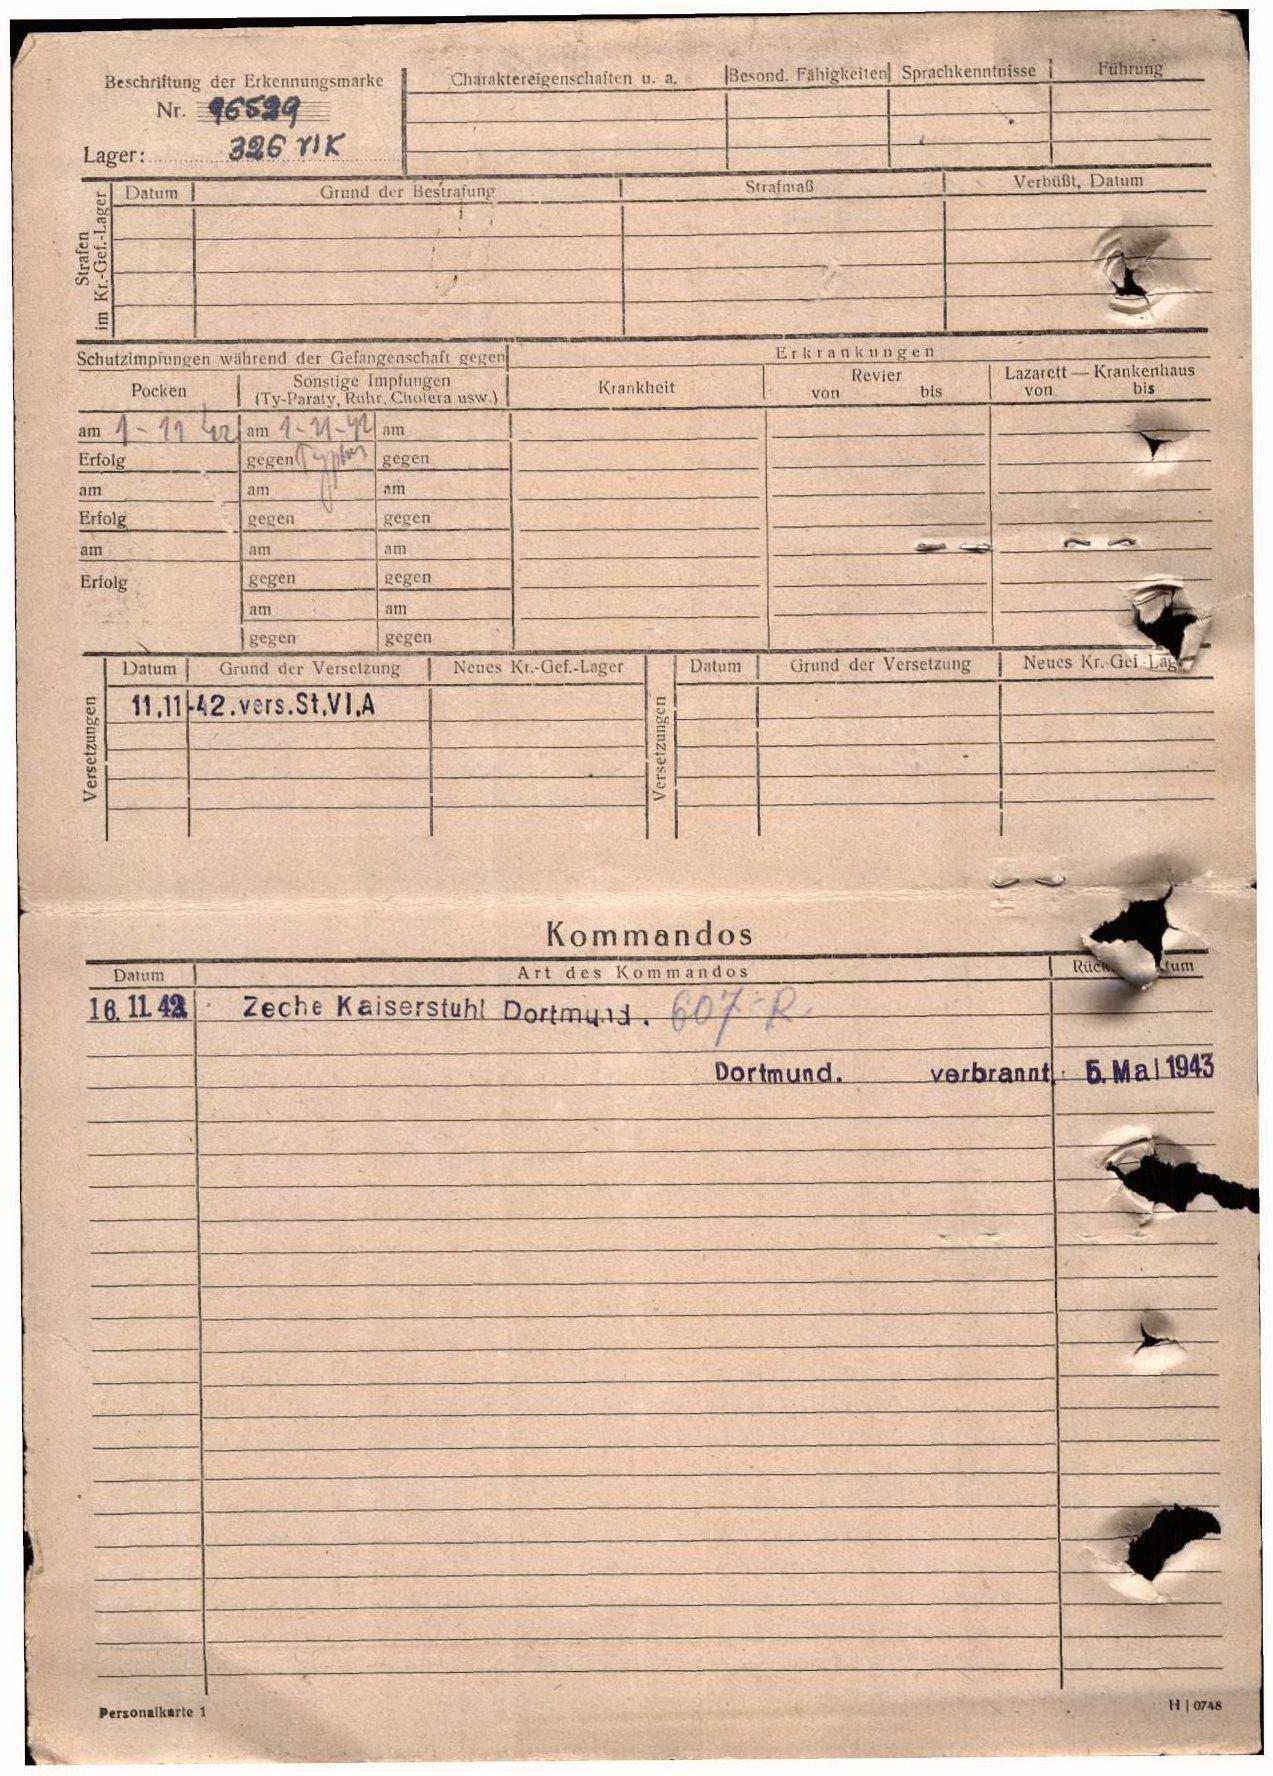 Beschriftung der Erkennungsmarke
Nr. 96529
Lager: 326 VIK
Charaktereigenschaften u. a. Besond. Fähigkeiten Sprachkenntnisse Führung
Strafen im Kr.-Gef.-Lager
Datum Grund der Bestrafung Strafmaß Verbüßt, Datum
Schutzimpfungen während der Gefangenschaft gegen Erkrankungen
Pocken Sonstige Impfungen Krankheit Revier Lazarett — Krankenhaus
(Ty-Paraty, Ruhr, Cholera usw.) von bis von bis
am 1-11 42 am 1-11-42 am
Erfolg gegen Typhus gegen
am am am
Erfolg gegen gegen
am am am
Erfolg gegen gegen
am am
gegen gegen
Versetzungen
Datum Grund der Versetzung Neues Kr.-Gef.-Lager
11.11.42. vers.St.VI.A
Versetzungen
Datum Grund der Versetzung Neues Kr.-Gef.-Lag
Kommandos
Datum Art des Kommandos Rück tum
16.11.42 Zeche Kaiserstuhl Dortmund. 607-R.
Dortmund. verbrannt. 5. Mai 1943
Personalkarte 1 H | 0748